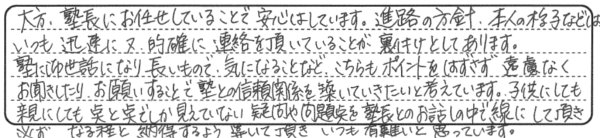 大方、塾長にお任せしていることで安心はしています。進路の方針、本人の様子などは
いつも迅速に又、的確に連絡を頂いていることが裏付けとしてあります。
塾にお世話になり長いもので、気になることなど、こちらもポイントをはずさず遠慮なく
お聞きしたり、お願いすることで塾との信頼関係を築いていきたいと考えています。子供にしても
親にしても点と点でしか見えていない疑問や問題点を塾長とのお話しの中で線にして頂き
必ず なる程と納得するよう導いて頂き いつも有難いと思っています。